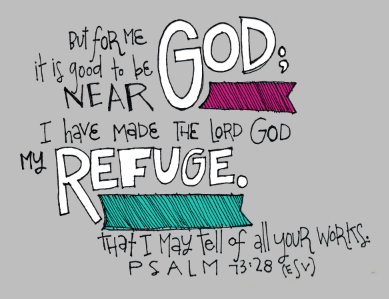 But for me
it is good to be
near God;
I have made the Lord God
my Refuge.
that I may tell of all your works.
Psalm 73:28 (ESV)